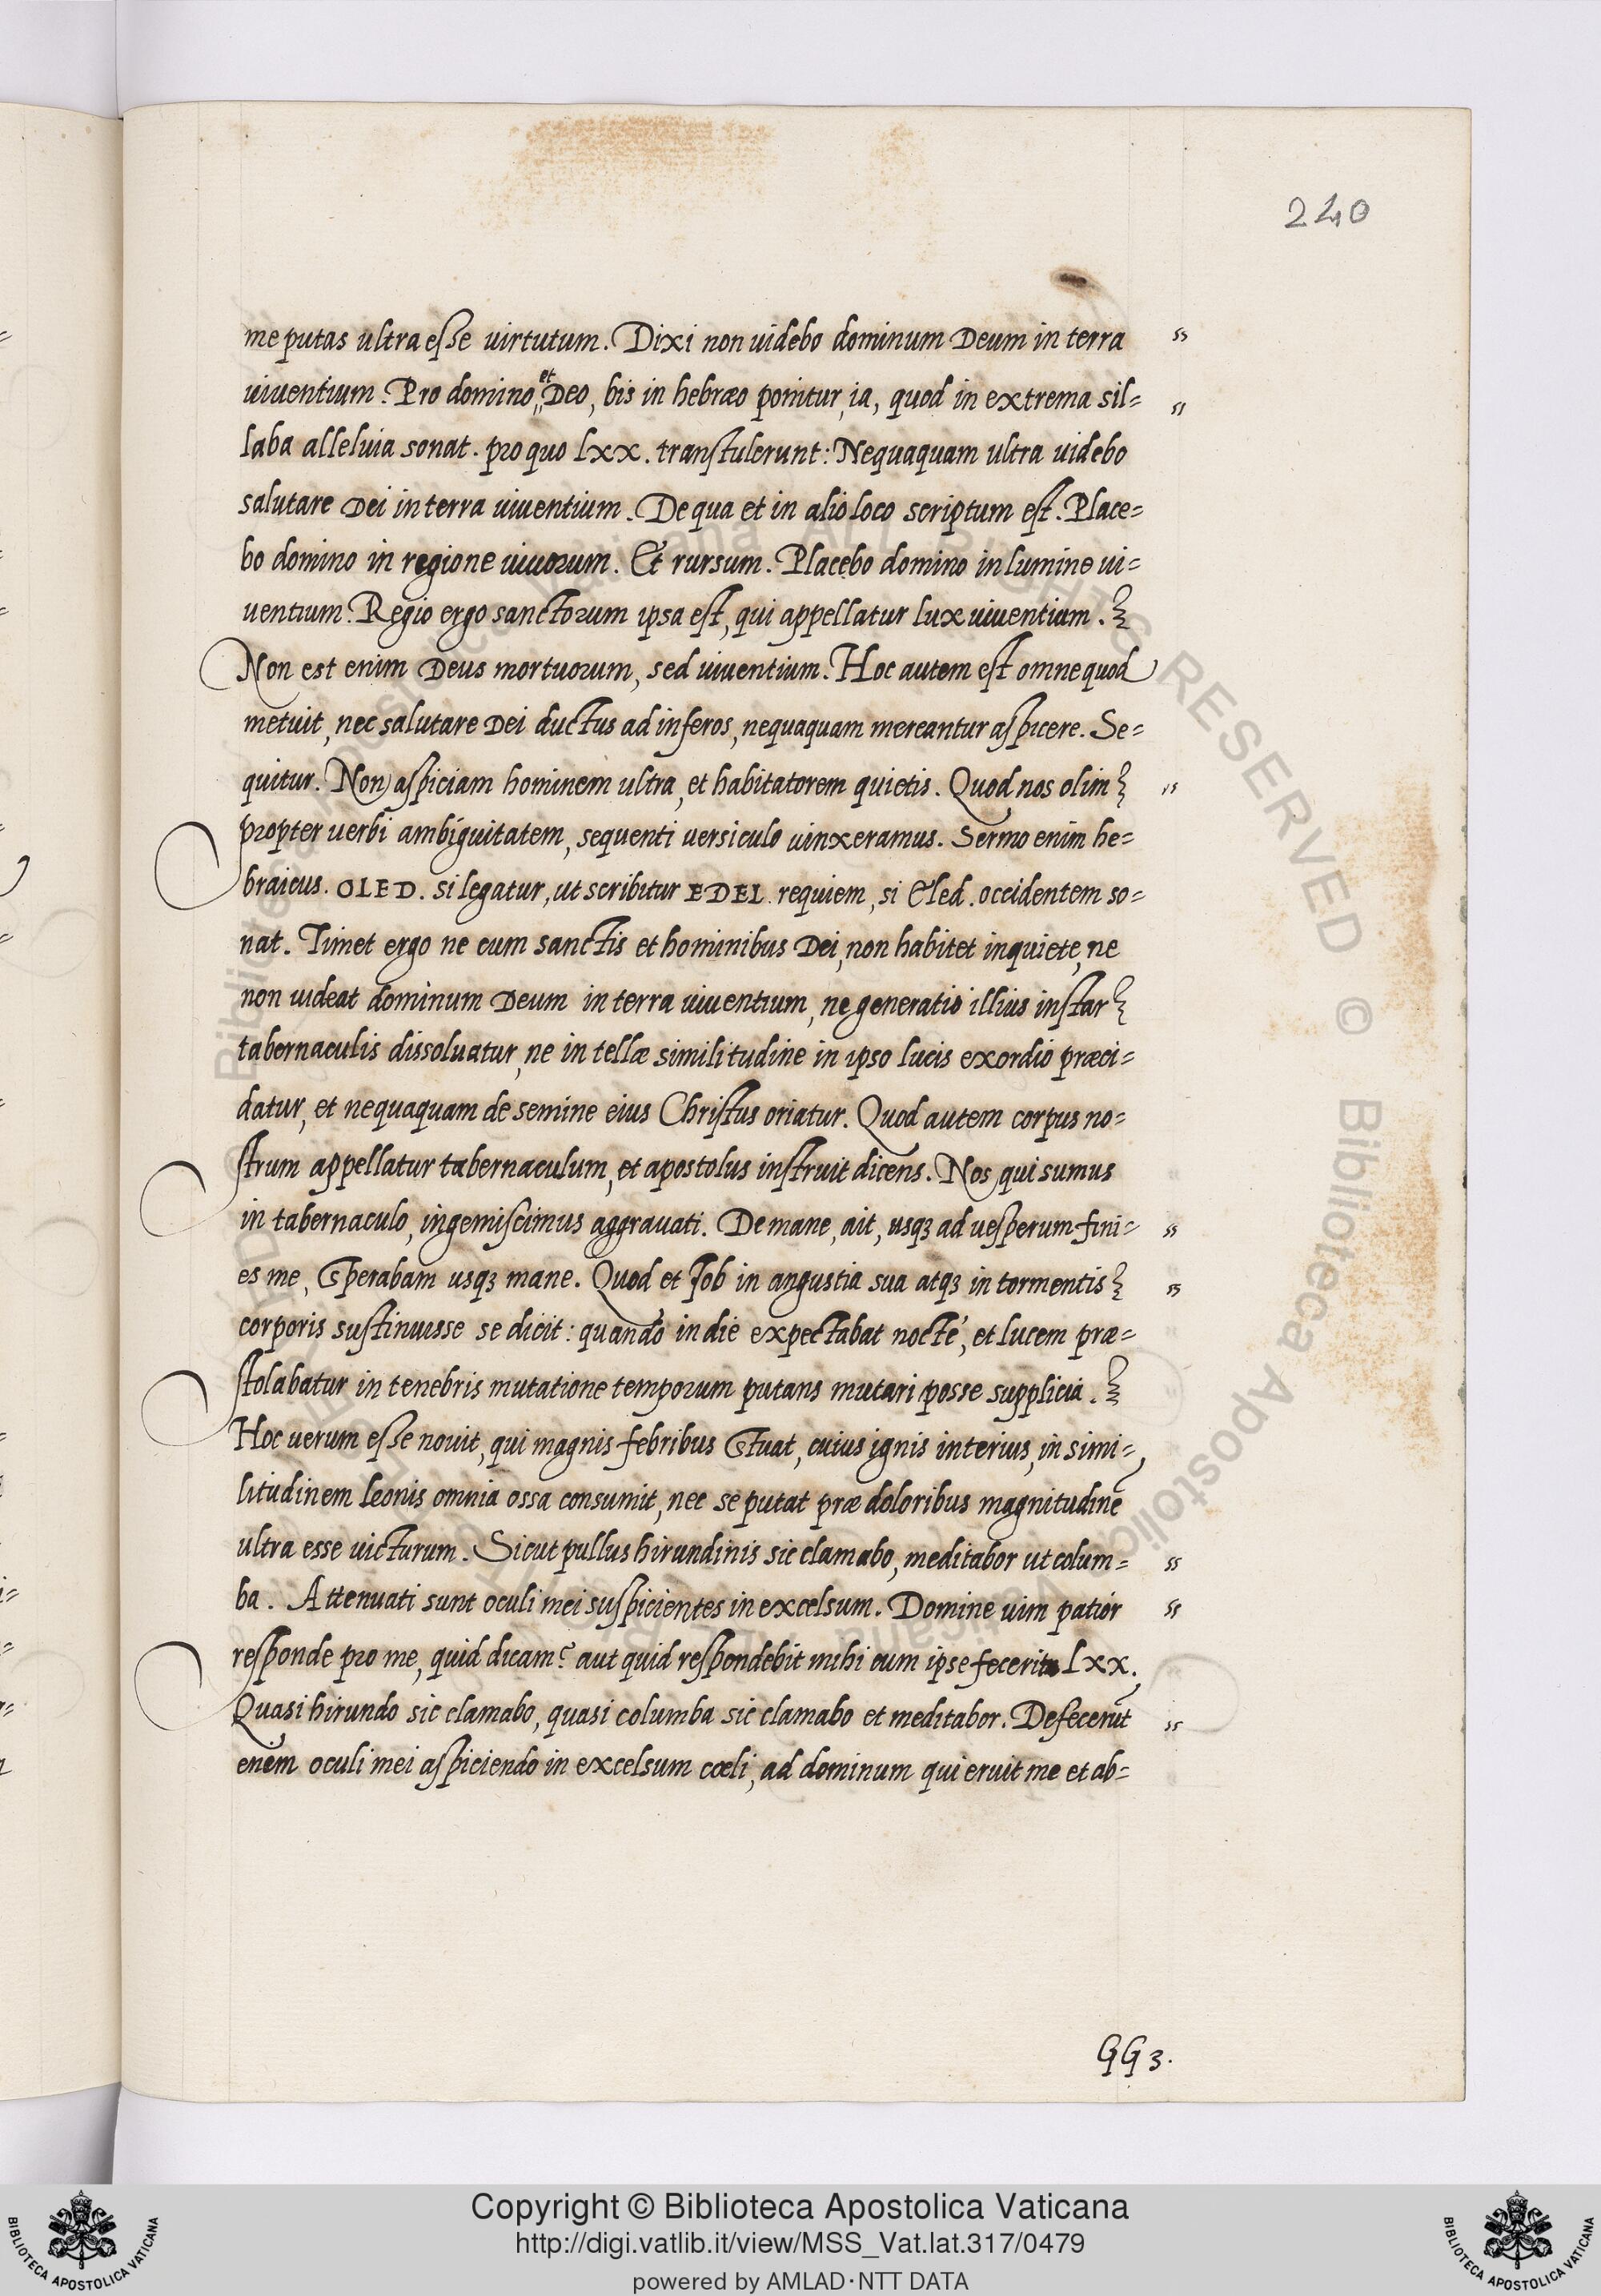 240
me putas ultra esse uirtutum. Dixi non uidebo dominum Deum in terra
uiuentium. Pro domino, et Deo, bis in hebræo ponitur, ia, quod in extrema sil=
laba alleluia sonat. pro quo lxx. transtulerunt: Nequaquam ultra uidebo
salutare Dei in terra uiuentium. De qua et in alio loco scriptum est. Place=
bo domino in regione uiuorum. Et rursum. Placebo domino in lumine ui=
uentium. Regio ergo sanctorum ipsa est, qui appellatur lux uiuentium.
Non est enim Deus mortuorum, sed uiuentium. Hoc autem est omne quod
metuit, nec salutare Dei ductus ad inferos, nequaquam mereantur aspicere. Se=
quitur. Non aspiciam hominem ultra, et habitatorem quietis. Quod nos olim
propter uerbi ambiguitatem, sequenti uersiculo uinxeramus. Sermo enim he=
braicus. OLED. si legatur, ut scribitur EDEL requiem, si Eled. occidentem so=
nat. Timet ergo ne cum sanctis et hominibus Dei, non habitet in quiete, ne
non uideat dominum Deum in terra uiuentium, ne generatio illius instar
tabernaculis dissoluatur, ne in tellæ similitudine in ipso lucis exordio præci=
datur, et nequaquam de semine eius Christus oriatur. Quod autem corpus no=
strum appellatur tabernaculum, et apostolus instruit dicens. Nos qui sumus
in tabernaculo, ingemiscimus aggrauati. De mane, ait, usqꝫ ad uesperum fini=
es me, Sperabam usqꝫ mane. Quod et Job in angustia sua atqꝫ in tormentis
corporis sustinuisse se dicit: quando in die expectabat nocte, et lucem præ=
stolabatur in tenebris mutatione temporum putans mutari posse supplicia.
Hoc uerum esse nouit, qui magnis febribus Estuat, cuius ignis interius, in simi=
litudinem leonis omnia ossa consumit, nec se putat præ doloribus magnitudine
ultra esse uicturum. Sicut pullus hirundinis sic clamabo, meditabor ut colum=
ba. Attenuati sunt oculi mei suspicientes in excelsum. Domine uim patior
responde pro me, quid dicam? aut quid respondebit mihi cum ipse fecerit. Lxx.
Quasi hirundo sic clamabo, quasi columba sic clamabo et meditabor. Defecerūt
enim oculi mei aspiciendo in excelsum cœli, ad dominum qui eruit me et ab=
GG 3.
Copyright © Biblioteca Apostolica Vaticana
http://digi.vatlib.it/view/MSS_Vat.lat.317/0479
powered by AMLAD·NTT DATA